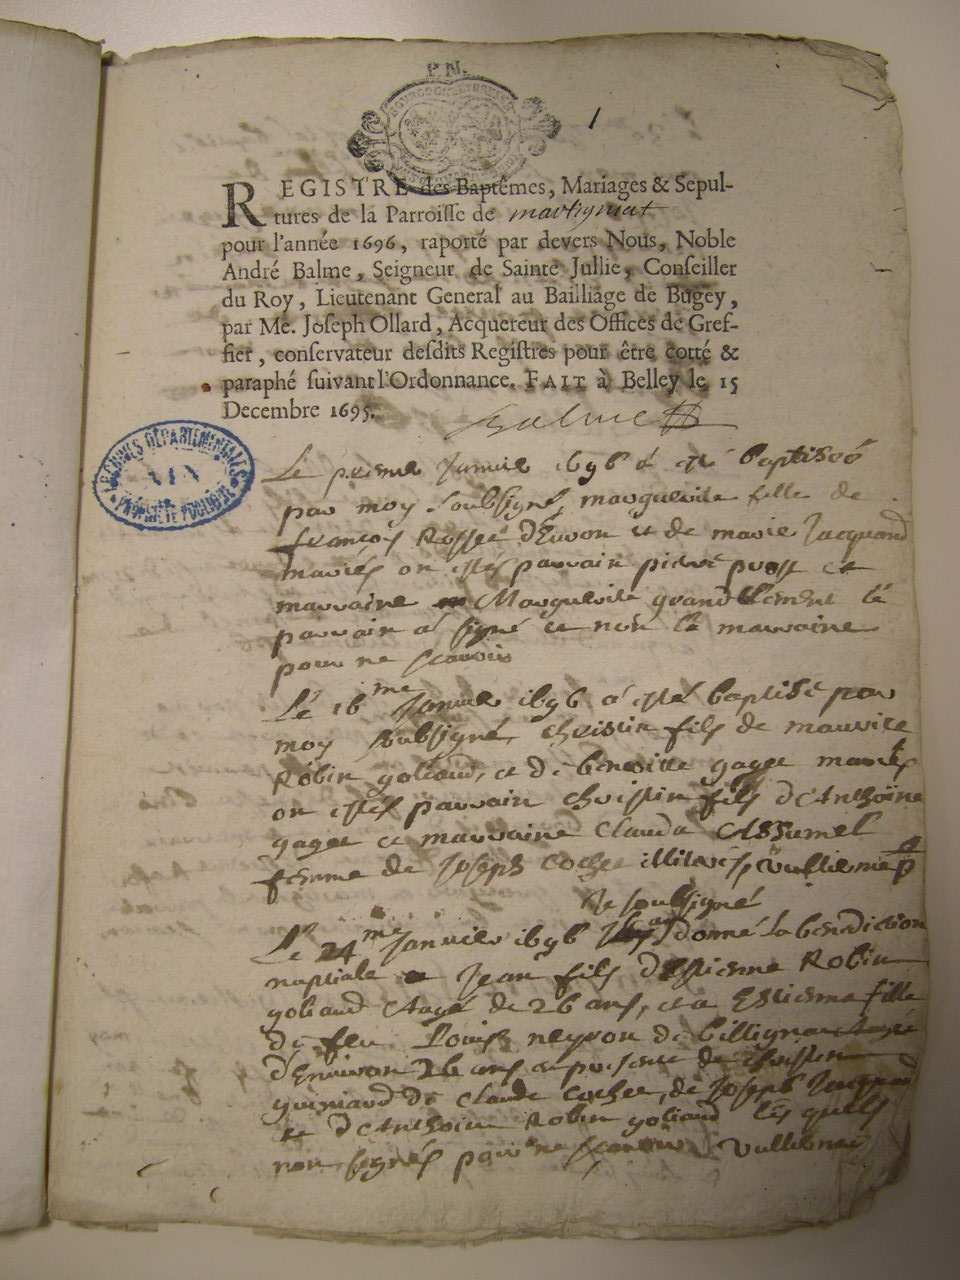 P.N.
1
REGISTRE des Baptêmes, Mariages & Sepul-
tures de la Parroisse de martigniat
pour l'année 1696, raporté par devers Nous, Noble
André Balme, Seigneur de Sainte Jullie, Conseiller
du Roy, Lieutenant General au Bailliage de Bugey,
par Me. Joseph Ollard, Acquereur des Offices de Gref-
fier, conservateur desdits Registres pour être cotté &
paraphé suivant l'Ordonnance. FAIT à Belley le 15
Decembre 1695.
Balme
ARCHIVES DÉPARTEMENTALES
AIN
PROPRIÉTÉ PUBLIQUE
Le premie Janvie 1696 a esté baptisée
par moy soubsigné, marguerite fille de
françois Rosset d'Evron et de marie Jacquand
mariés on estés parrain pierre et
marraine Marguerite grandclement le
parrain a signé et non la marraine
pour ne scavoir
Le 16me Janvier 1696 a esté baptisé par
moy soubsigné, christin fils de maurice
Robin goliand, et de benoitte gagee mariés
on estés parrain christin fils d'Anthoine
gagee et marraine Clauda Assumel
femme de Joseph cochet illiterés vulliermep
Je soubsigné
Le 24me Janvier 1696 donné la benediction
nuptiale a Jean fils d'Estienne Robin
goliand et agé de 26 ans, et a Estienna fille
de feu Louis neyron de billignat agée
d'Environ 26 ans en presence de christin
guinand de Claude cochet, de Joseph Jacquand
et d'Anthoine Robin goliand lesquels
non signés pour ne scavoir vulliermep